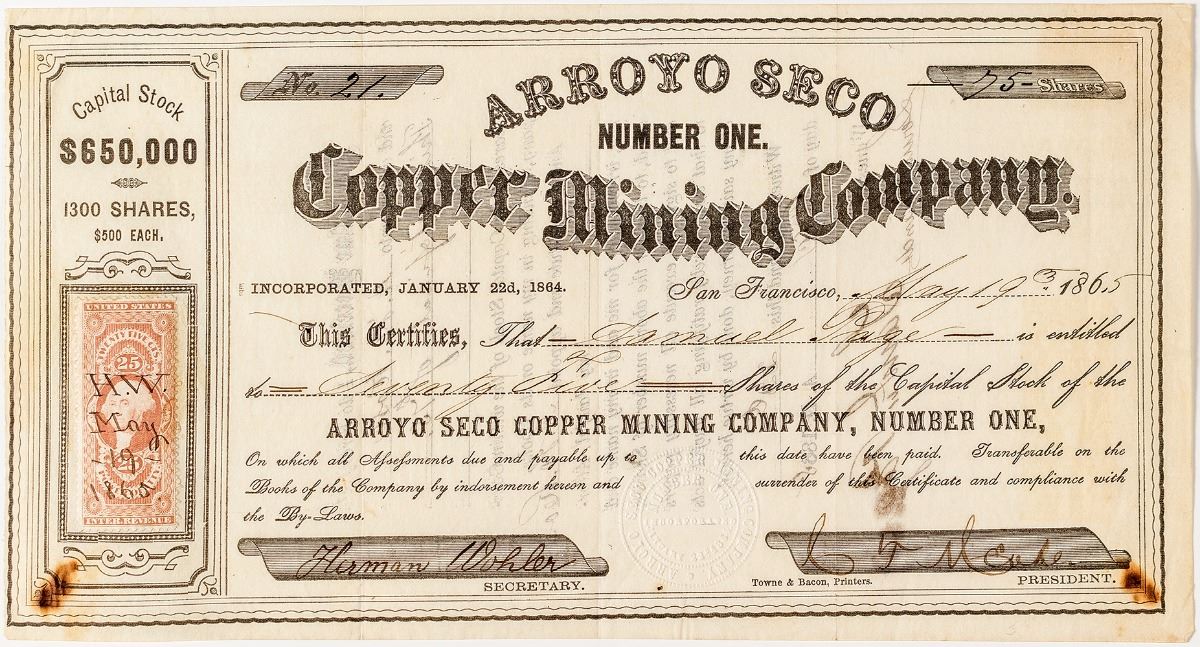 No. 21.
75 Shares
ARROYO SECO
NUMBER ONE.
Copper Mining Company.
Capital Stock
$650,000
1300 SHARES,
$500 EACH.
INCORPORATED, JANUARY 22d, 1864.
San Francisco, May 19 1865
This Certifies, That Samuel Page is entitled
to Seventy Five Shares of the Capital Stock of the
ARROYO SECO COPPER MINING COMPANY, NUMBER ONE,
On which all Assessments due and payable up to this date have been paid. Transferable on the
Books of the Company by indorsement hereon and surrender of this Certificate and compliance with
the By-Laws.
UNITED STATES
TWENTY FIVE CTS.
25
H.W.
May
19
1865
INTER. REVENUE
Herman Wohler
SECRETARY.
Towne & Bacon, Printers.
PRESIDENT.